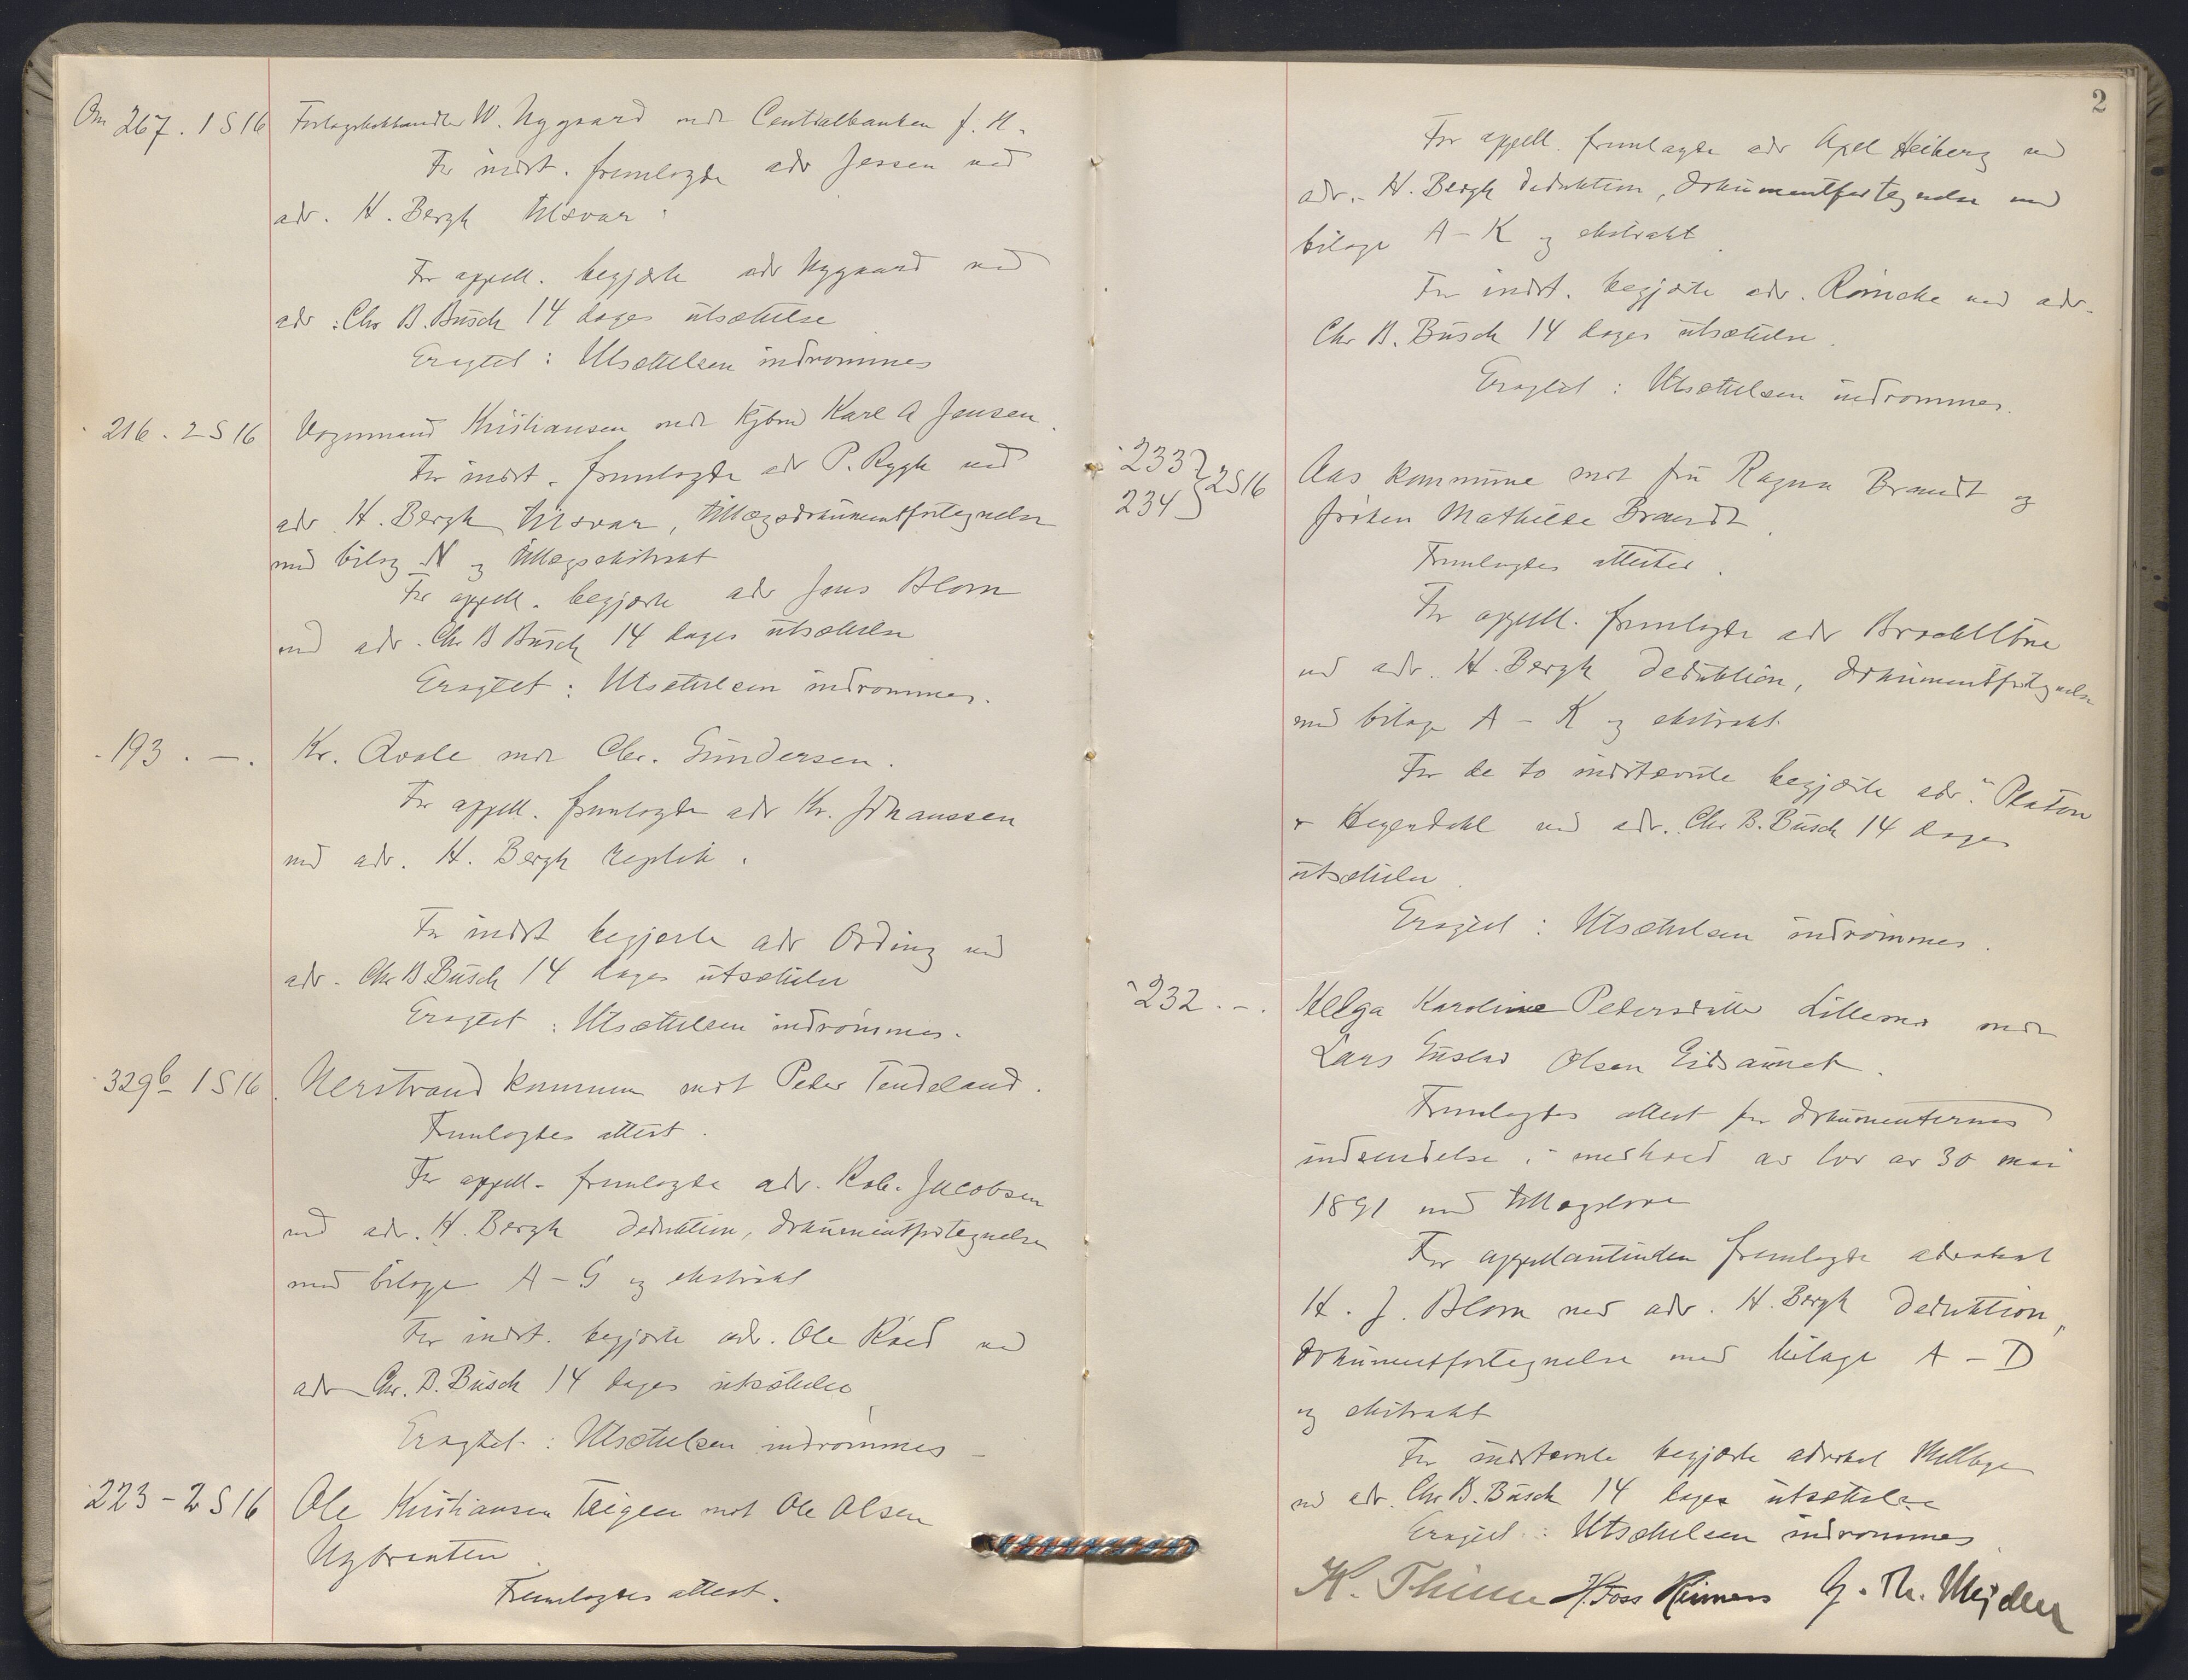 Om 267. 1 S 16 Forlagsbokhandler W. Nygaard mot Centralbanken f. N.
For indst. fremlagde adv Jessen ved
adv. H. Bergh tilsvar.
For appell. begjærte adv Nygaard ved
adv. Chr B. Busch 14 dages utsættelse
Eragtet: Utsættelsen indrømmes
216. 2 S 16 Vognmand Kristiansen mot Kjbmd Karl A Jensen.
For indst. fremlagde adv P. Rygh ved
adv H. Bergh tilsvar, tillægsdokumentfortegnelse
med bilag N og tillægsekstrakt
For appell. begjærte adv Jens Blom
ved adv. Chr B Busch 14 dages utsættelse
Eragtet: Utsættelsen indrømmes.
193. -. Kr. Qvale mot Chr. Gundersen.
For appell. fremlagde adv Kr. Johanssen
ved adv. H. Bergh replik.
For indst begjærte adv Ording ved
adv. Chr B Busch 14 dages utsættelse
Eragtet: Utsættelsen indrømmes.
329b 1 S 16 Nerstrand kommune mot Peder Tendeland.
Fremlagdes attest.
For appell. fremlagde adv. Rob. Jacobsen
ved adv. H. Bergh deduktion, dokumentfortegnelse
med bilage A-G og ekstrakt
For indst. begjærte adv. Ole Røed ved
adv Chr. B. Busch 14 dages utsættelse
Eragtet: Utsættelsen indrømmes
223-2 S 16 Ole Kristiansen Teigen mot Ole Olsen
Nybraaten.
Fremlagdes attest.
2
For appell. fremlagde adv Axel Heiberg ved
adv. H. Bergh deduktion, dokumentfortegnelse med
bilage A-K og ekstrakt.
For indst. begjærte adv. Romcke ved adv.
Chr B. Busch 14 dages utsættelse.
Eragtet: Utsættelsen indrømmes.
233
234 } 2 S 16 Aas kommune mot fru Ragna Brandt og
frøken Mathilde Brandt.
Fremlagdes attester.
For appell. fremlagde adv
ved adv. H. Bergh deduktion, dokumentfortegnelse
med bilage A-K og ekstrakt.
For de to indstevnte begjærte adv. Platou
v Hegerdahl ved adv. Chr B. Busch 14 dages
utsættelse.
Eragtet: Utsættelsen indrømmes.
232. -. Helga Karoline Pedersdatter Lillemo mot
Lars Gustav Olsen Eidsaunet.
Fremlagdes attest for dokumenternes
indsendelse i medhold av lov av 30 mai
1891 med tillægslove
For appellantinden fremlagde advokat
H. J. Blom ved adv. H. Bergh deduktion,
dokumentfortegnelse med bilage A-D
og ekstrakt
For indstevnte begjærte advokat Mellbye
ved adv. Chr B. Busch 14 dages utsættelse
Eragtet: Utsættelsen indrømmes.
K. Thinn H. Foss Reimers G. Th. Mejdell